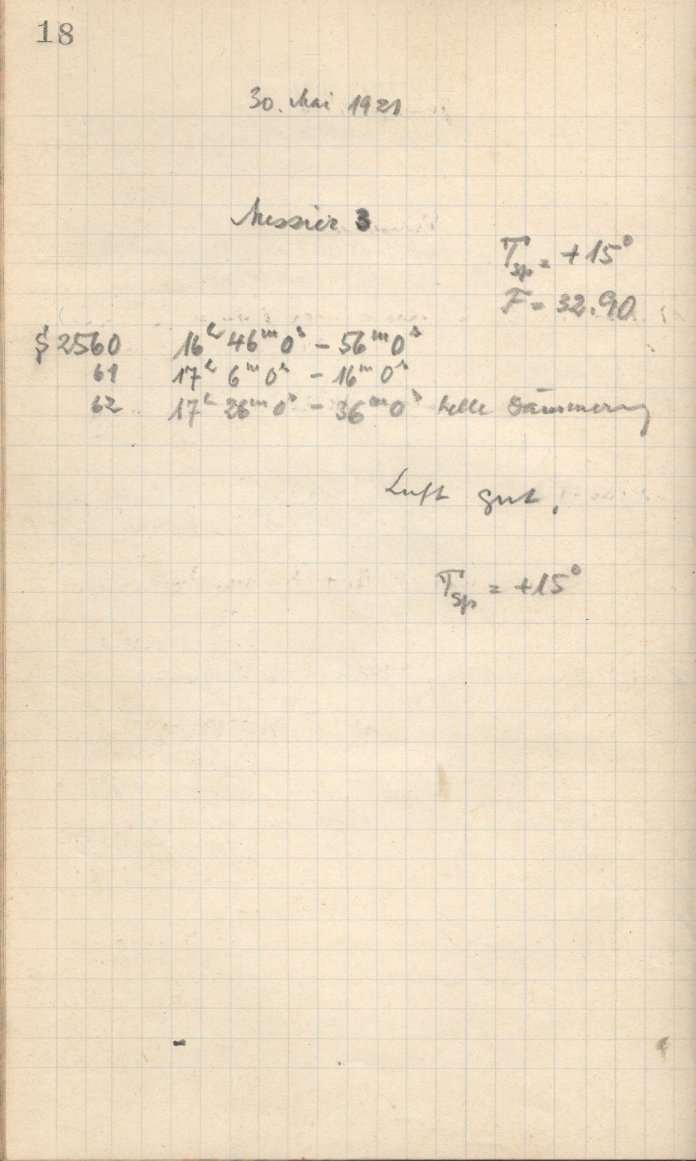 18
30. Mai 1921
Messier 3
T_sp = +15°
F = 32.90
S 2560 16h 46m 0s – 56m 0s
61 17h 6m 0s – 16m 0s
62 17h 26m 0s – 36m 0s helle Dämmerung
Luft gut.
T_sp = +15°